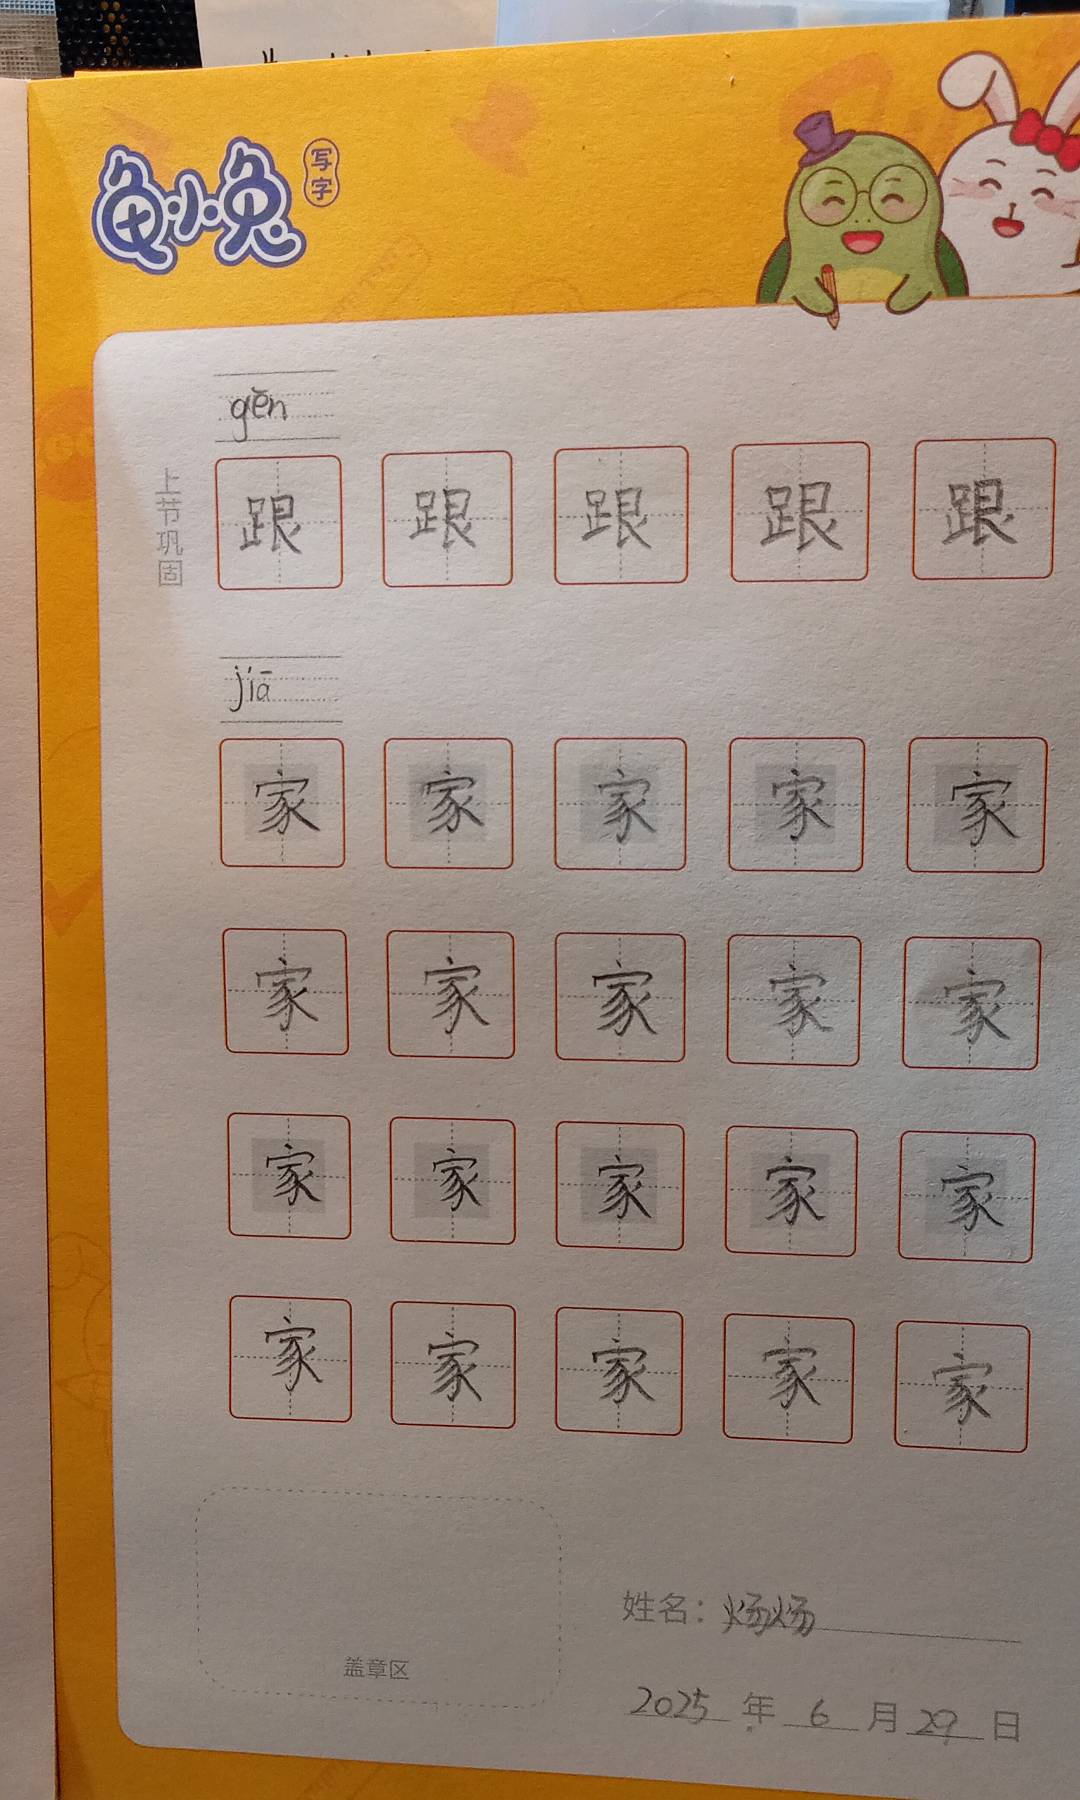 龟小兔 写字
gēn
上节巩固
跟 跟 跟 跟 跟
jiā
家 家 家 家 家
家 家 家 家 家
家 家 家 家 家
家 家 家 家 家
姓名：炀炀
盖章区
2025 年 6 月 29 日